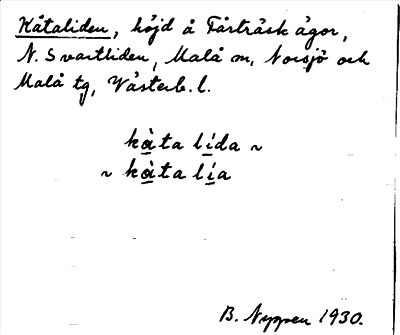 Kåtaliden, höjd å Fårträsk ägor,
N. Svartliden, Malå m, Norsjö och
Malå tg, Västerb. l.
kàta lída ~
~ kàta lía
B. Nyppen 1930.